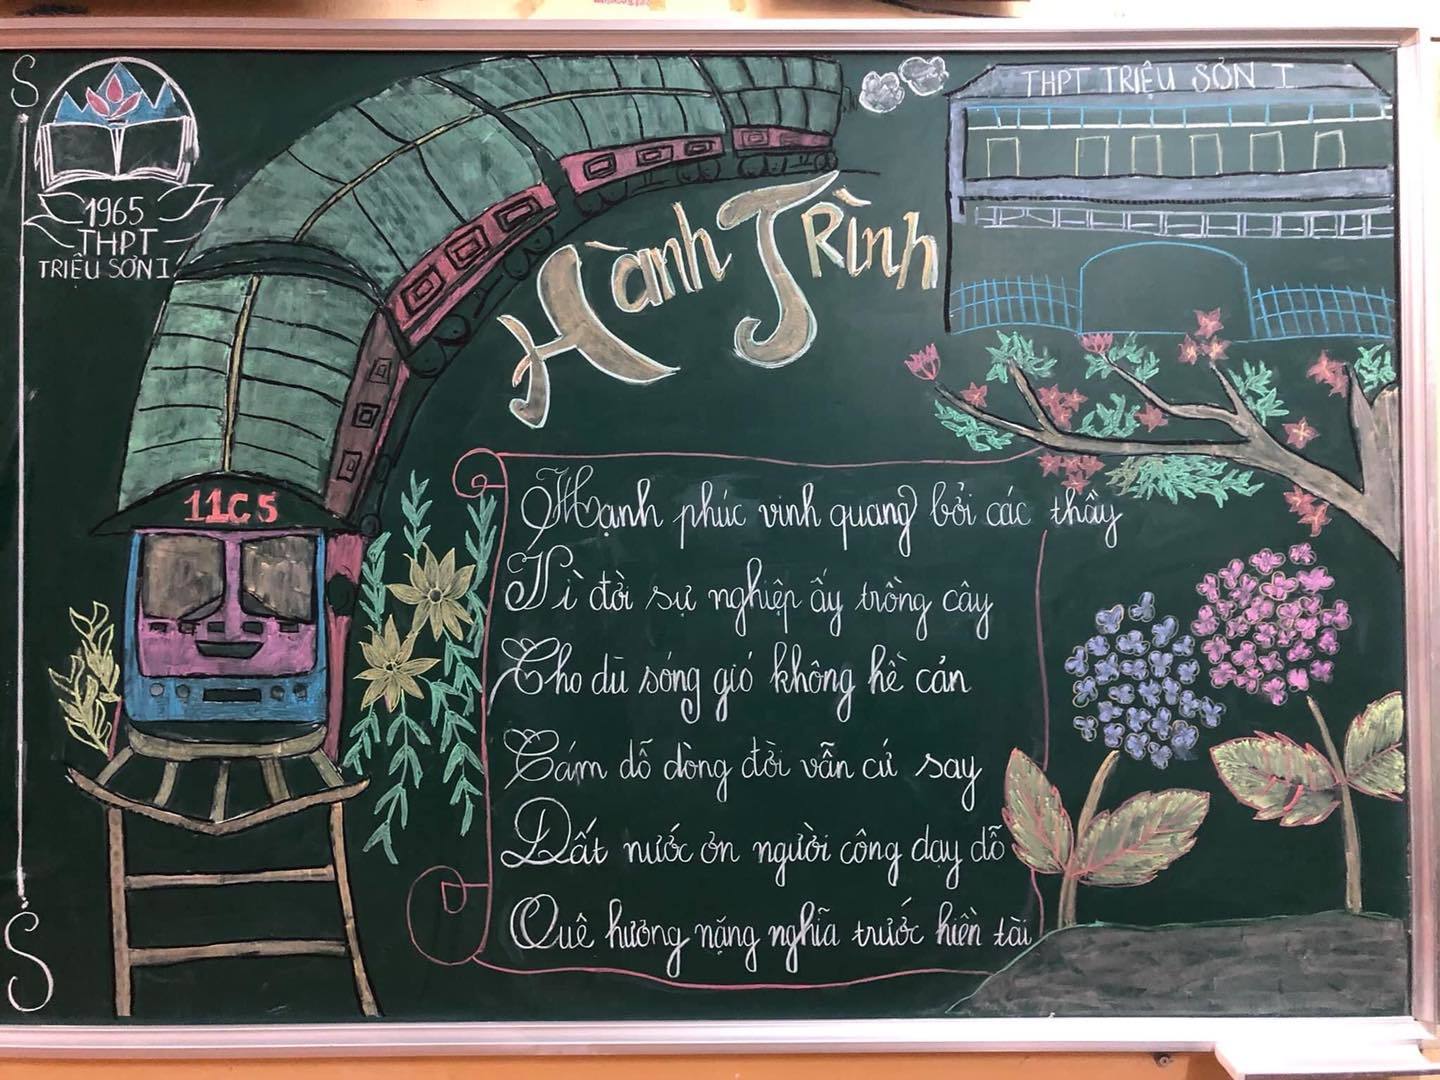 S
1965
THPT
TRIỆU SƠN I
Hành Trình
THPT TRIỆU SƠN I
11C5
Hạnh phúc vinh quang bởi các thầy
Vì đời sự nghiệp ấy trồng cây
Cho dù sóng gió không hề cản
Cám dỗ dòng đời vẫn cứ say
Đất nước ơn người công dạy dỗ
Quê hương nặng nghĩa trước hiền tài
S